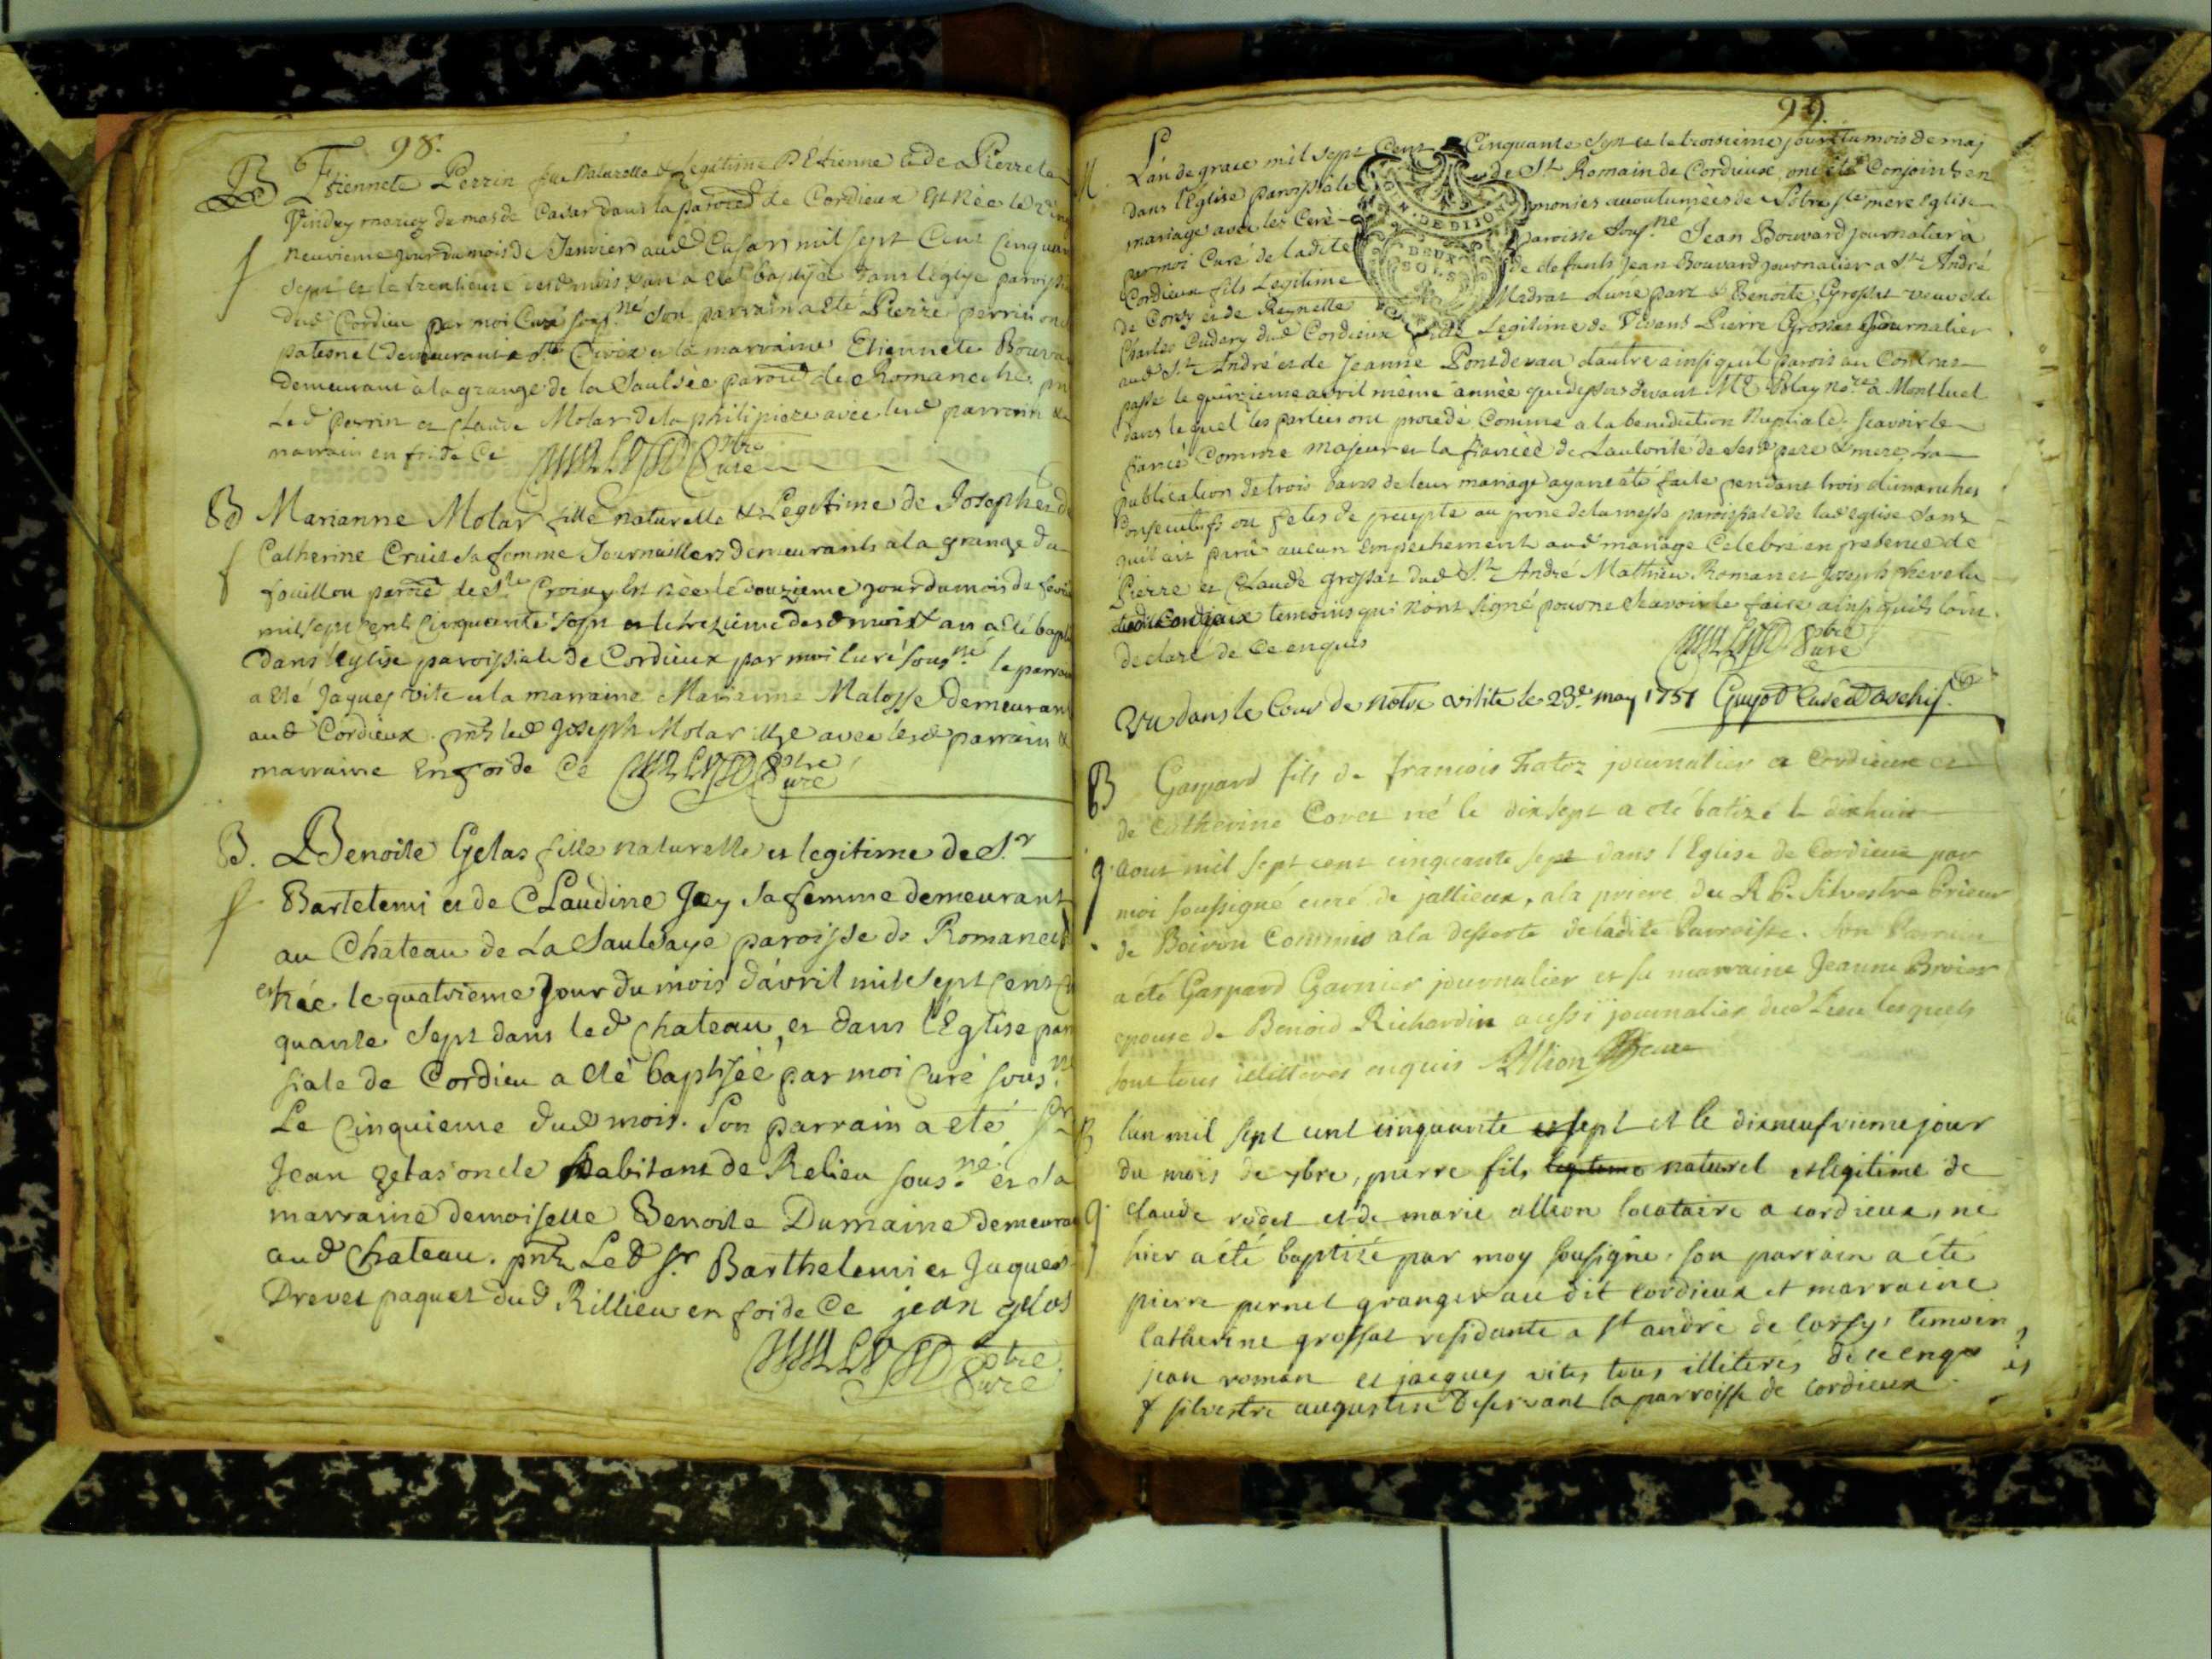 98.
B Etiennete Perrin fille Naturelle & Legitime D'Etienne et de Pierrete
Vindry mariez du mas de Cavar dans la paroisse de Cordieux Est Née le
neuvieme jour du mois de Janvier aud mil sept Cent Cinquan
sept et le trentieme desd mois & an a eté baptisée dans l'eglise paroissi
dud Cordieu par moi Curé sous.né Son parrain a eté Pierre perrin oncle
paternel demeurant a Ste Croix et la marraine Etiennete Bouva
demeurant a la grange de la Saulsée paroisse de Romaneche.
Led Perrin et Claude Molar de la philipiere avec lesd parrain &
marraine en foi de Ce ptre Curé
B Marianne Molar fille naturelle & Legitime de Joseph et de
Catherine Cruit sa femme Journaillers demeurants a la grange du
fouillou paroisse de Ste Croix, Est née le douzieme jour du mois de fevri
mil sept cent Cinquante sept et le trezieme desd mois & an a été bapti
Dans l'Eglise paroissiale de Cordieux par moi curé sous.né le parrain
a eté Jaques vite et la marraine Marianne Malosse demeurant
aud Cordieux. prts led Joseph Molar illre avec lesd parrain &
marraine En foi de Ce ptre Curé
B. Benoite Gelas fille naturelle et legitime de Sr
Bartelemi et de Claudine Jay sa femme demeurant
au Chateau de La Saulsaye paroisse de Romanech
est née le quatrieme Jour du mois d'avril mil sept cent cin
quante sept dans led chateau, et dans l'Eglise paroi
siale de Cordieu a eté baptisée par moi curé sous.né
Le Cinquieme dud mois. Son parrain a eté Sr
Jean gelas oncle habitant de Relieu sous.né et la
marraine demoiselle Benoite Dumaine demeurant
aud Chateau. prts Led Sr Barthelemi et Jaques
Drevet paquet dud Rillieu en foi de Ce jean gelas
ptre Curé
99.
M. L'an de grace mil sept Cent Cinquante sept et le troisieme jour du mois de maj
dans l'Eglise paroissiale de St Romain de Cordieux, ont eté Conjoints en
mariage avec les Ceré monies accoutumées de Notre Ste mere Eglise
par moi Curé de ladite paroisse sous.né Jean Bouvard journalier à
Cordieux fils Legitime de defunts Jean Bouvard journalier a St André
de Corcy et de Reynette Madras d'une part & Benoite Grossat veuve de
Charles Cudery dud Cordieux fille Legitime de Vivans Pierre Grossat journalier
aud St André et de Jeanne Pontdevau d'autre ainsi qu'il parois au Contrat
passé le quinzieme avril même année que dessus devant Me Blay no.re a Montluel
dans lequel les parties ont procedé Comme a la benediction Nuptiale; scavoir le
fiancé Comme Majeur et la fiancée de L'autorité de sesd pere & mere, La
publication de trois bans de leur mariage ayant eté faite pendant trois dimanches
Consecutifs ou fetes de precepte au prone de la messe paroissiale de lad eglise sans
qu'il ait paru aucun Empechement aud mariage Celebré en presence de
Pierre et Claude grossat dud St André Mathieu Roman et joseph chevelu
dud Cordieux temoins qui n'ont signé pour ne scavoir le faire ainsi qu'ils l'ont
declaré de Ce enquis ptre Curé
GEN. DE DIJON
DEUX
SOLS
Vu dans le Cour de notre visite le 23e may 1757 Guyot Curé
B Gaspard fils de françois Fatoz journalier a Cordieux et
de Catherine Covet né le dixsept a eté batizé le dixhuit
aout mil sept cent cinquante sept dans l'Eglise de Cordieux par
moi soussigné curé de jallieux, a la priere du R. P. Silvestre Prieur
de Boivon Commis a la desserte de ladite Parroisse. Son Parrain
a eté Gaspard Garnier journalier et sa marraine Jeanne Broier
epouse de Benoid Richardin aussi journalier dud Lieu lesquels
sont tous illitteres enquis Allion
B l'an mil sept cent cinquante sept et le dixneufvieme jour
du mois de 7bre, pierre fils legitime naturel et legitime de
claude rodet et de marie allion locataire a cordieux, né
hier a été baptizé par moy sousigné. son parrain a été
pierre pernet granger audit cordieux et marraine
Catherine grossat residante a St andré de corsy, temoin
jean roman et jacques vites tous illiterés de ce enquis
f silvestre augustin deservant la parroisse de cordieux